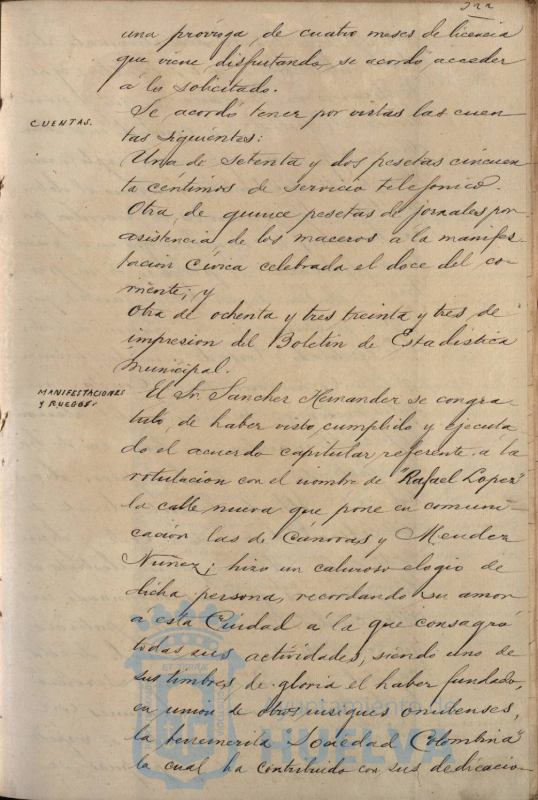 222
una próroga de cuatro meses de licencia
que viene disfrutando, se acordó acceder
á lo solicitado.
CUENTAS.
Se acordó tener por vistas las cuen
tas siguientes:
Una de setenta y dos pesetas cincuen
ta céntimos de servicio telefonico.
Otra de quince pesetas de jornales por
asistencia de los maceros a la manifes
tación Cívica celebrada el doce del co-
rriente; y
Otra de ochenta y tres treinta y tres de
impresion del Boletin de Estadistica
municipal.
MANIFESTACIONES
Y RUEGOS.
El Sr. Sanchez Hernandez se congra
tuló de haber visto cumplido y ejecuta
do el acuerdo capitular referente á la
rotulacion con el nombre de "Rafael Lopez"
la calle nueva que pone en comuni
cación las de Cánovas y Mendez
Nuñez; hizo un caluroso elogio de
dicha persona, recordando su amor
á esta Ciudad á la que consagró
todas sus actividades, siendo uno de
sus timbres de gloria el haber fundado,
en unión de otros insignes onubenses,
la benemerita Sociedad Colombina
la cual ha contribuido con sus dedicacio-
Ayuntamiento de
HUELVA